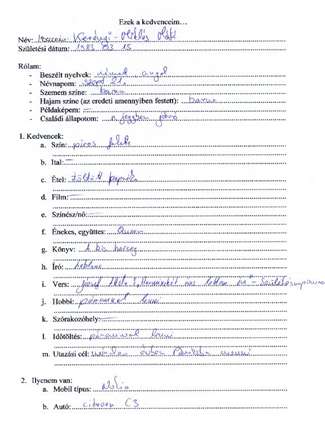 Ezek a kedvenceim…
Név: "Kerényi" - Miklós Máté
Születési dátum: 1983 03 15
Rólam:
- Beszélt nyelvek: német angol
- Névnapom: szept 21.
- Szemem színe: barna
- Hajam színe (az eredeti amennyiben festett): barna
- Példaképem: —
- Családi állapotom: jegyben járó
1. Kedvencek:
a. Szín: piros fekete
b. Ital: —
c. Étel: Töltött paprika
d. Film: —
e. Színész/nő: —
f. Énekes, együttes: Queen
g. Könyv: A kis herceg
h. Író:
i. Vers: József Attila -
j. Hobbi: párommal lenni
k. Szórakozóhely: —
l. Időtöltés: párommal lenni
m. Utazási cél:
2. Ilyenem van:
a. Mobil típus: Nokia
b. Autó: citroen C3